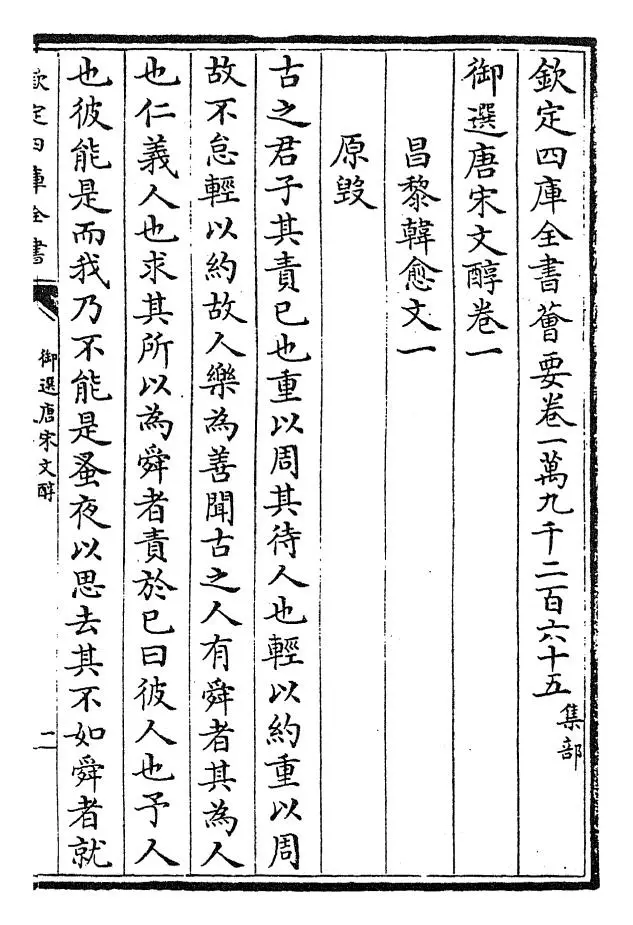 欽定四庫全書薈要卷一萬九千二百六十五 集部
御選唐宋文醇卷一
昌黎韓愈文一
原毀
古之君子其責已也重以周其待人也輕以約重以周
故不怠輕以約故人樂為善聞古之人有舜者其為人
也仁義人也求其所以為舜者責於已曰彼人也予人
也彼能是而我乃不能是蚤夜以思去其不如舜者就
欽定四庫全書
御選唐宋文醇
二